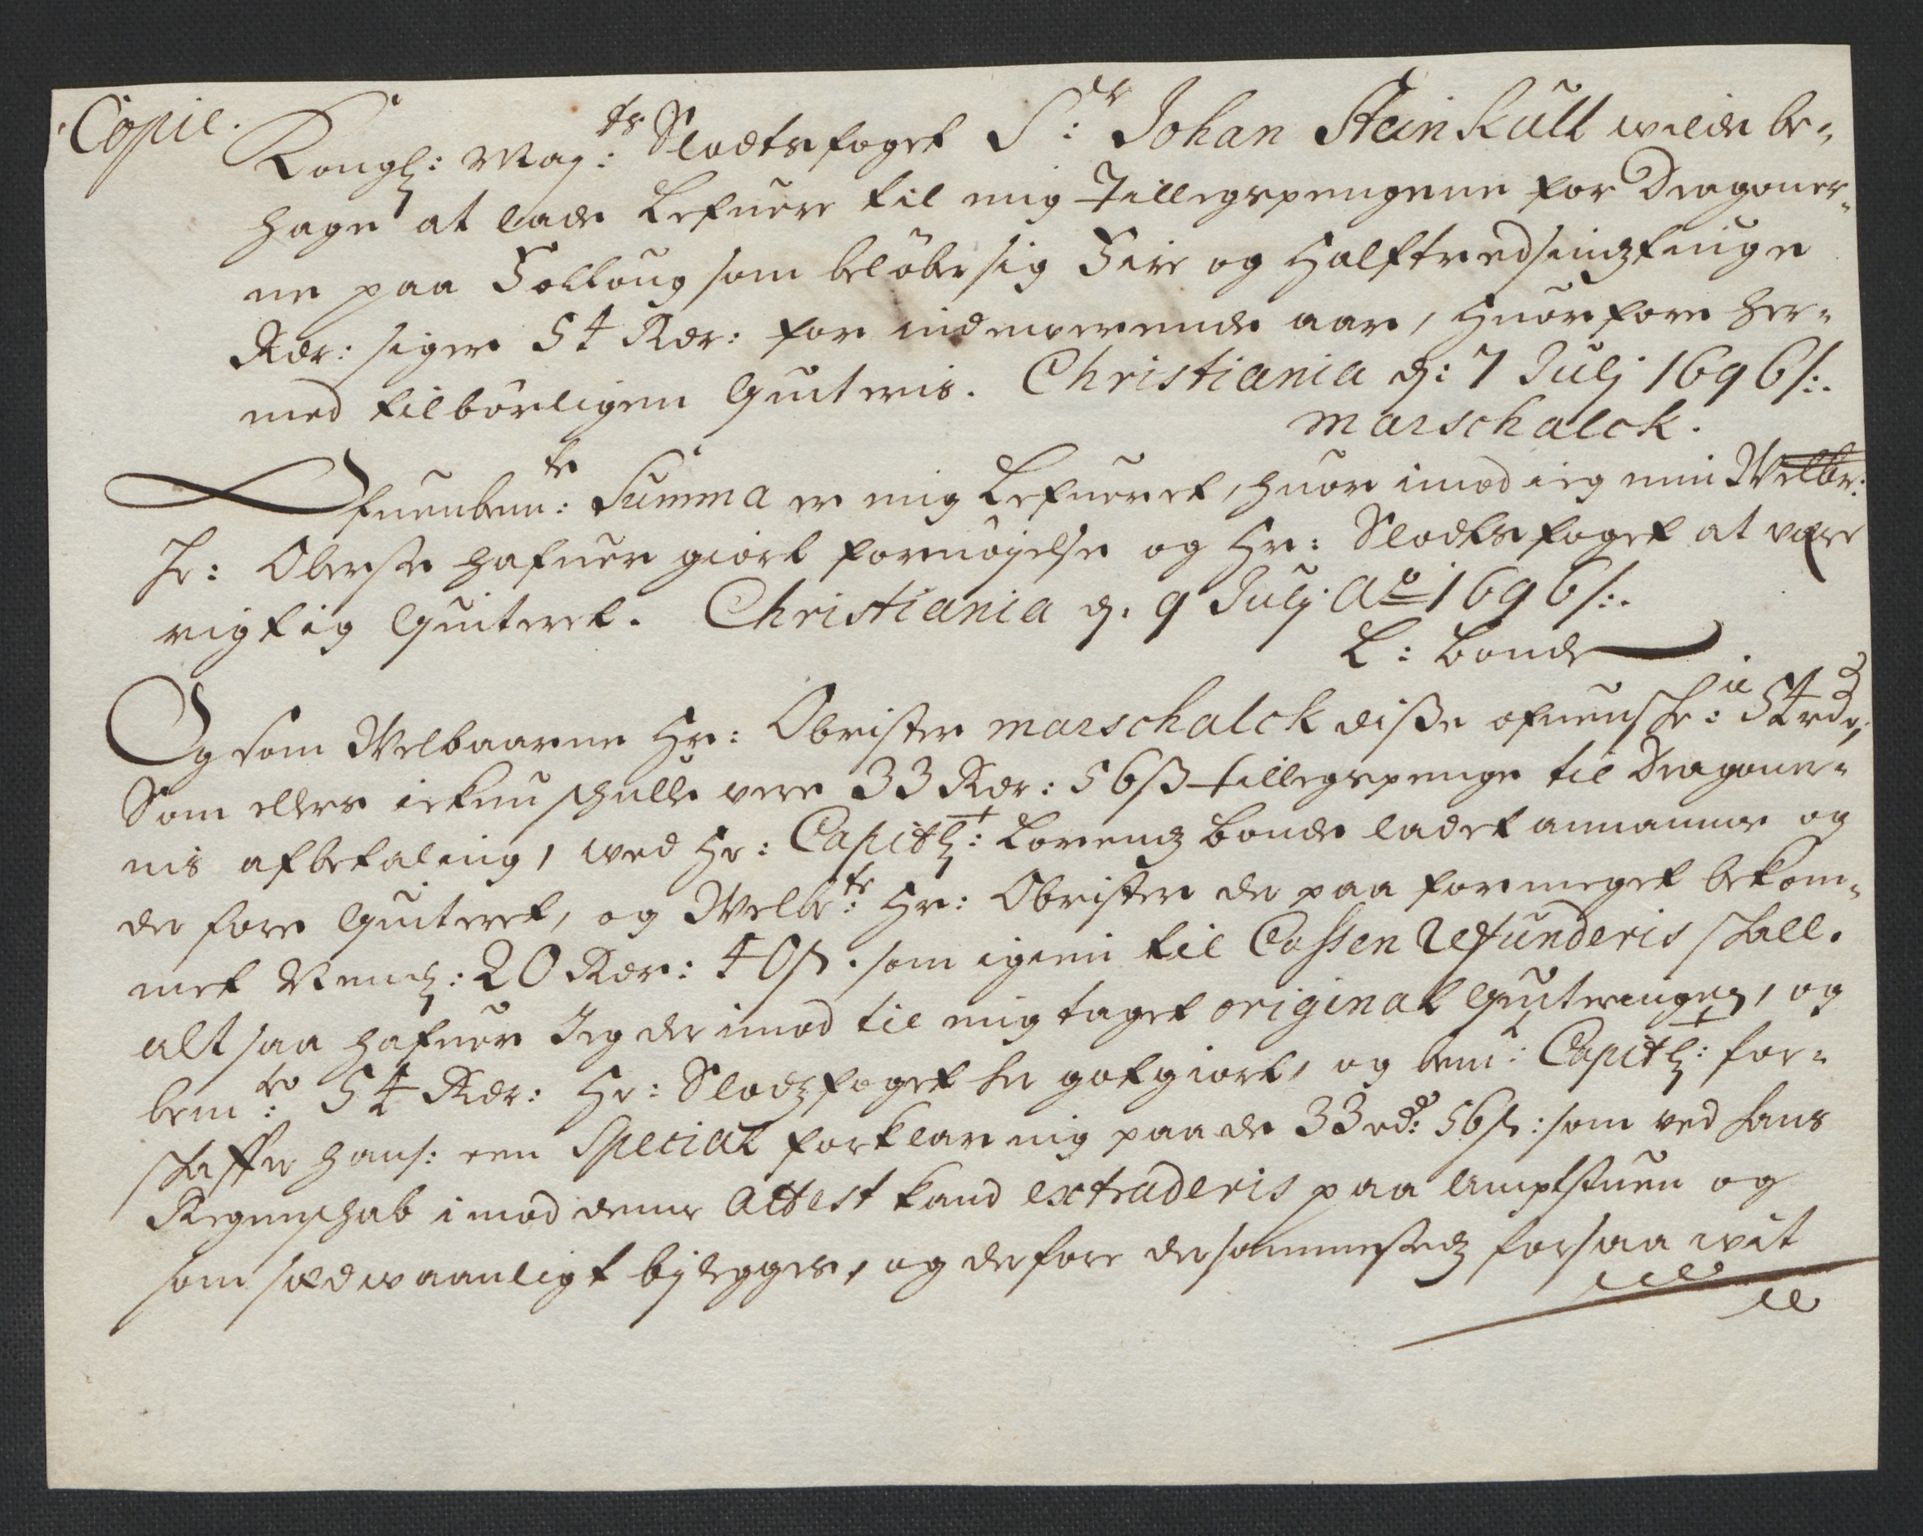 Copie.
Kongl: May:ts Slodtsfoget Sr: Johan Steinkull wilde be-
hage at lade Lefuere til mig Tillegspengene for Dragoner-
ne paa Folloug som beløber sig Fire og Halftredsindztiuge
Rdr: siger 54 Rdr: for inderwerende aar, Huorfore her-
med tilbørligen Quiteris. Christiania d: 7 Julj 1696/:.
Marschalck.
Ofuenbemte: Summa er mig Lefueret, huor imod ieg min Welbr:
Hr: Oberste hafuer giort fornøyelse og Hr: Slodtsfoget at være
rigtig Quiteret. Christiania d. 9 Julj Ao 1696/:.
L: Bonde
Og som Welbaarne Hr: Obrister Marschalck diße ofuenschr: 54 rdr,
Som ellers ickun schulle were 33 Rdr: 56ß tillegspenge til Dragoner-
nis afbetaling, wed Hr: Capitl: Lorenz Bonde ladet annamme og
derfore Quiteret, og Welbte: Hr: Obrister der paa formeget bekom-
met Neml: 20 Rdr: 40ß. som igien til Cassen Refunderis schall.
altsaa hafuer Jeg derimod til mig taget original Quiteringen, og
bemte: 54 Rdr: Hr: Slodzfoget her gotgiort, og bemt: Capitl: for-
schaffer hans: een Special forklaring paa de 33 rdr: 56ß: som ved hans
Regenschab imod denne Attest kand extraderis paa Amptstuen og
som sædwaanligt bylegges, og derfore dersammestedz forsaa wit